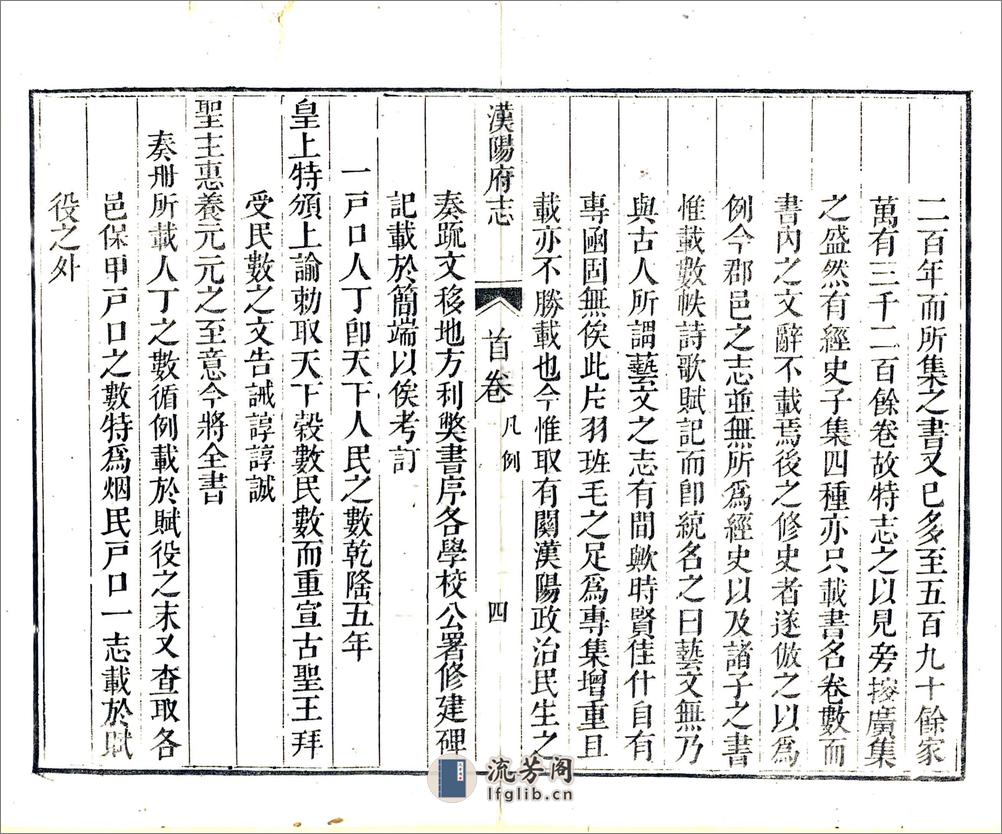 二百年而所集之書又已多至五百九十餘家
萬有三千二百餘卷故特志之以見旁搜廣集
之盛然有經史子集四種亦只載書名卷數而
書內之文辭不載焉後之修史者遂倣之以爲
例今郡邑之志並無所爲經史以及諸子之書
惟載數帙詩歌賦記而卽統名之曰藝文無乃
與古人所謂藝文之志有間歟時賢佳什自有
專凾固無俟此片羽班毛之足爲專集增重且
載亦不勝載也今惟取有關漢陽政治民生之
漢陽府志 首卷 凡例 四
奏疏文移地方利獘書序各學校公署修建碑
記載於簡端以俟考訂
一戸口人丁卽天下人民之數乾隆五年
皇上特頒上諭勅取天下穀數民數而重宣古聖王拜
受民數之文告誡諄諄誠
聖主惠養元元之至意今將全書
奏冊所載人丁之數循例載於賦役之末又查取各
邑保甲戸口之數特爲烟民戸口一志載於賦
役之外
流芳阁
lfglib.cn